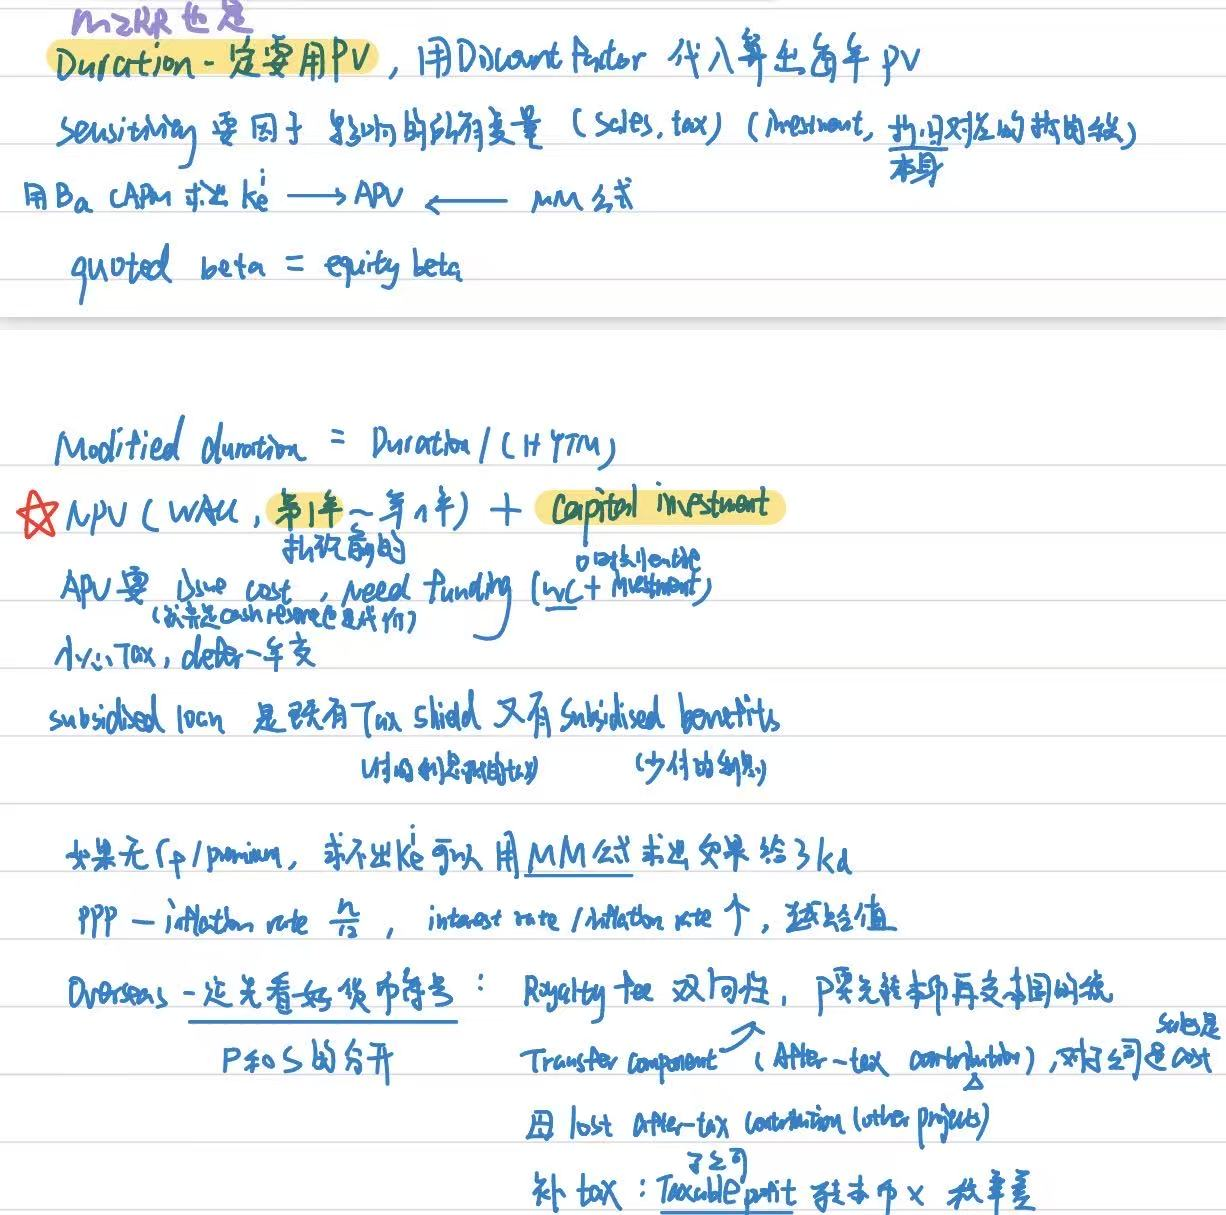 MIRR也是
Duration一定要用PV，用Discount Factor 代入算出每年PV
Sensitivity 要因于影响的所有变量（sales, tax）（investment,
本身
用Ba CAPM 求出 kei → APV ← MM 公式
quoted beta = equity beta
Modified duration = Duration/(1+YTM)
☆ NPV (WACC, 第1年～第n年) + Capital investment
折现前的
APV 要 issue cost, need funding (WC + Investment)
(就算是cash reserve也是代价)
小心Tax, defer一年支
subsidised loan 是既有Tax shield 又有Subsidised benefits
(少付的利息)
如果无rf/premium, 求不出kei 可以用MM公式求出 如果给了kd
PPP — inflation rate n/12, interest rate/inflation rate ↑, 越给值
Overseas 一定先看好货币符号: Royalty fee 双向性, P要先转本币再支本国的税
sales是
P和S的分开 Transfer component (After-tax contribution), 对于公司是cost
△
用 lost after-tax contribution (other projects)
子公司
补 tax: Taxable profit 转本币 × 税率差